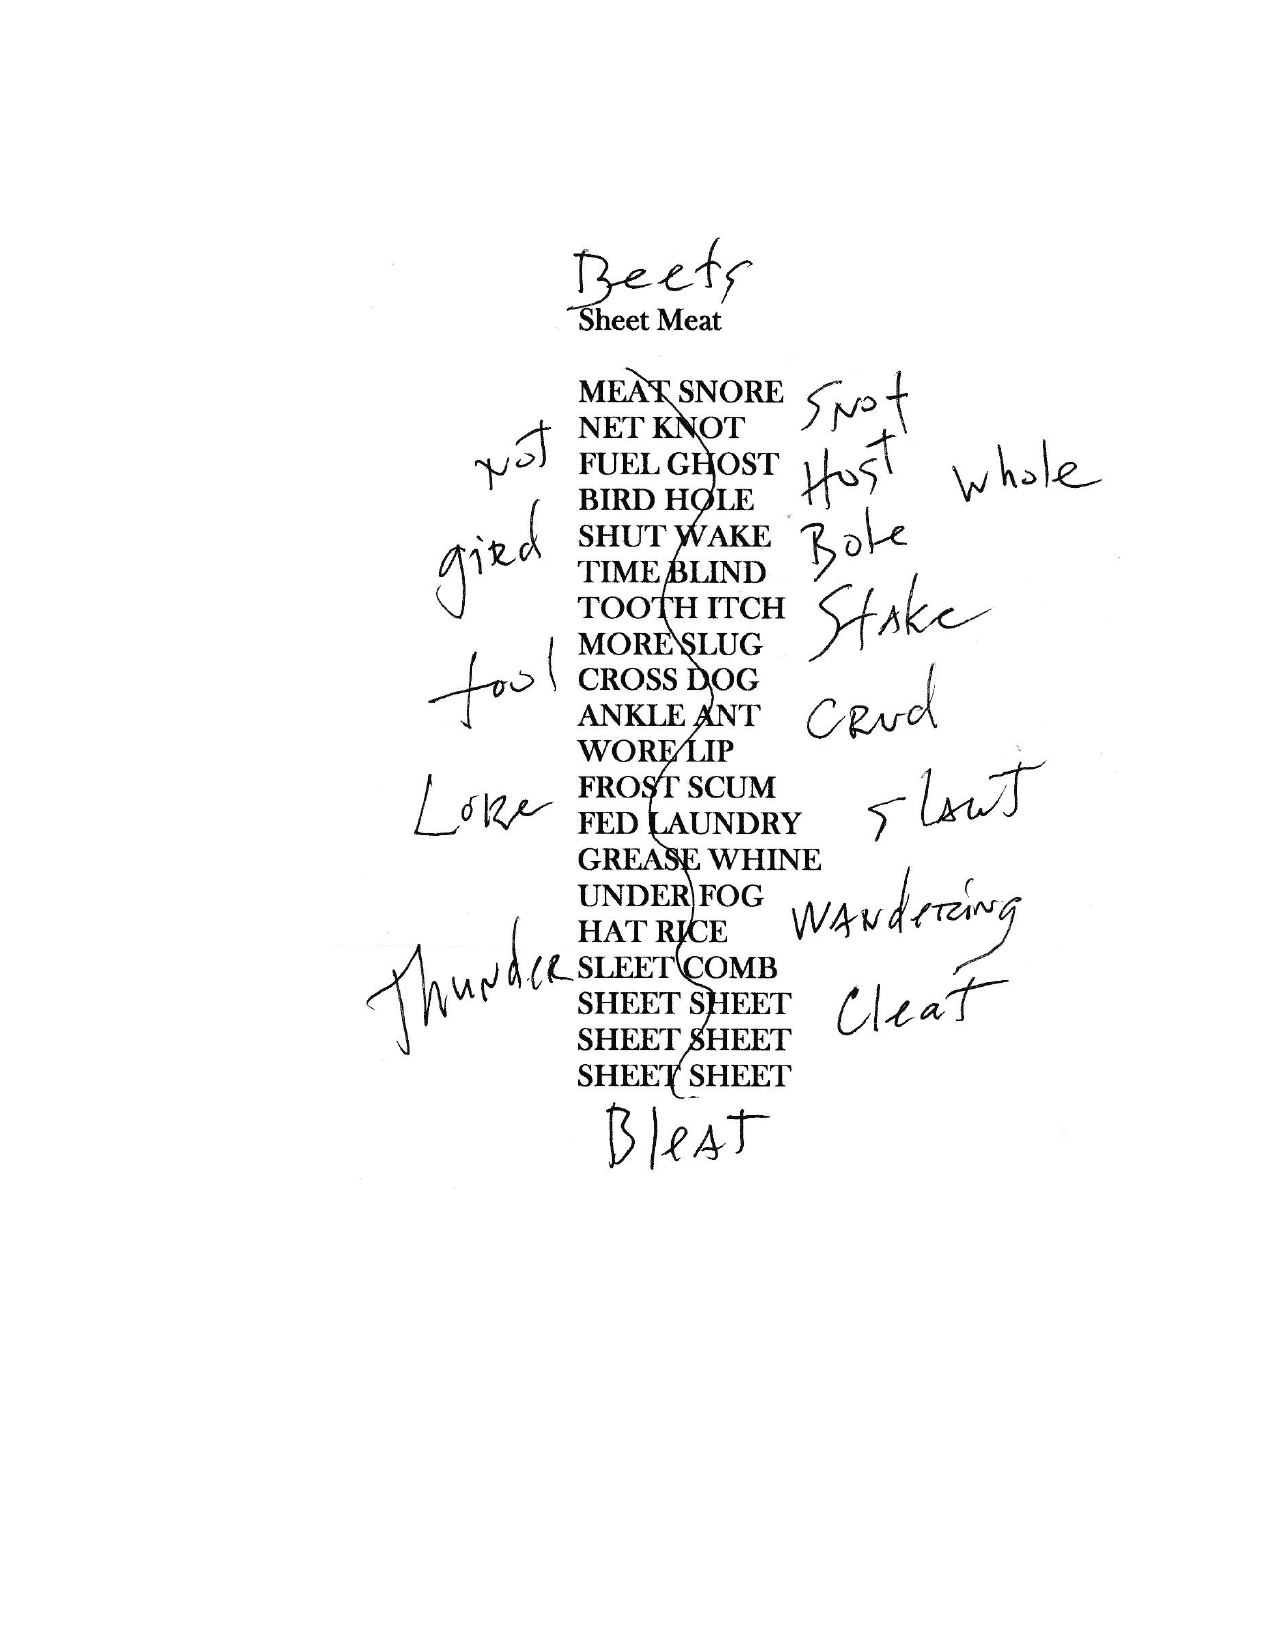 Beets
Sheet Meat
MEAT SNORE
Snot
NET KNOT
not
FUEL GHOST
Host
whole
BIRD HOLE
gird
SHUT WAKE
Bole
TIME BLIND
TOOTH ITCH
Stake
MORE SLUG
tool
CROSS DOG
ANKLE ANT
CRud
WORE LIP
FROST SCUM
Lore
slawt
FED LAUNDRY
GREASE WHINE
UNDER FOG
WANdering
HAT RICE
SLEET COMB
Thunder
SHEET SHEET
Cleat
SHEET SHEET
SHEET SHEET
BleAT